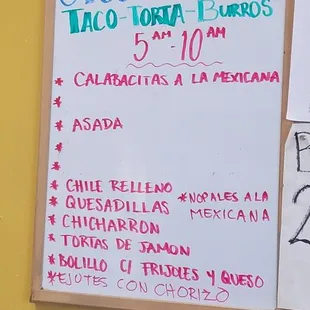 TACO-TORTA-BURROS
5 AM - 10 AM
* CALABACITAS A LA MEXICANA
*
* ASADA
*
*
* CHILE RELLENO
* QUESADILLAS
* NOPALES A LA
MEXICANA
* CHICHARRON
* TORTAS DE JAMON
* BOLILLO C/ FRIJOLES Y QUESO
* EJOTES CON CHORIZO